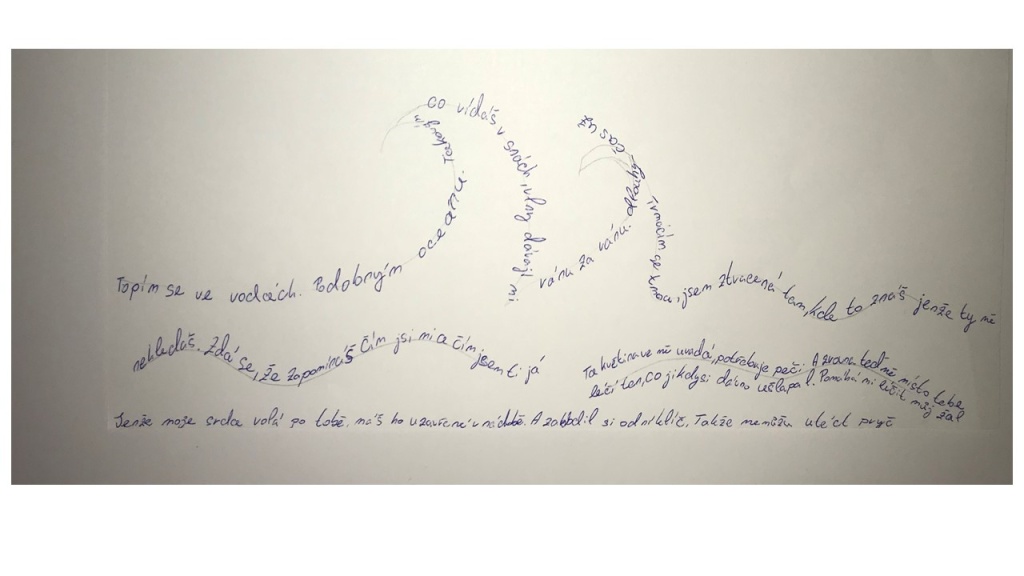 Topím se ve vodách. Podobným oceanu. Takovým co vídáš v snách, vlny dávají mi ránu za ránu. dlouhý čas už Tvmácím se tmou, jsem ztracená tam, kde to znáš jenže ty mě
nehledáš. Zdá se, že zapomínáš čím jsi mi a čím jsem ti já
Ta květina ve mě uvadá, potřebuje péči. A zrovna teď mě místo tebe,
léčí ten, co ji kdysi dávno ušlapal. Pomáhá mi léčit můj žal
Jenže moje srdce volá po tobě, máš ho uzavřené v nádobě. A zahodil si od ní klíč, Takže nemůžu utéct pryč